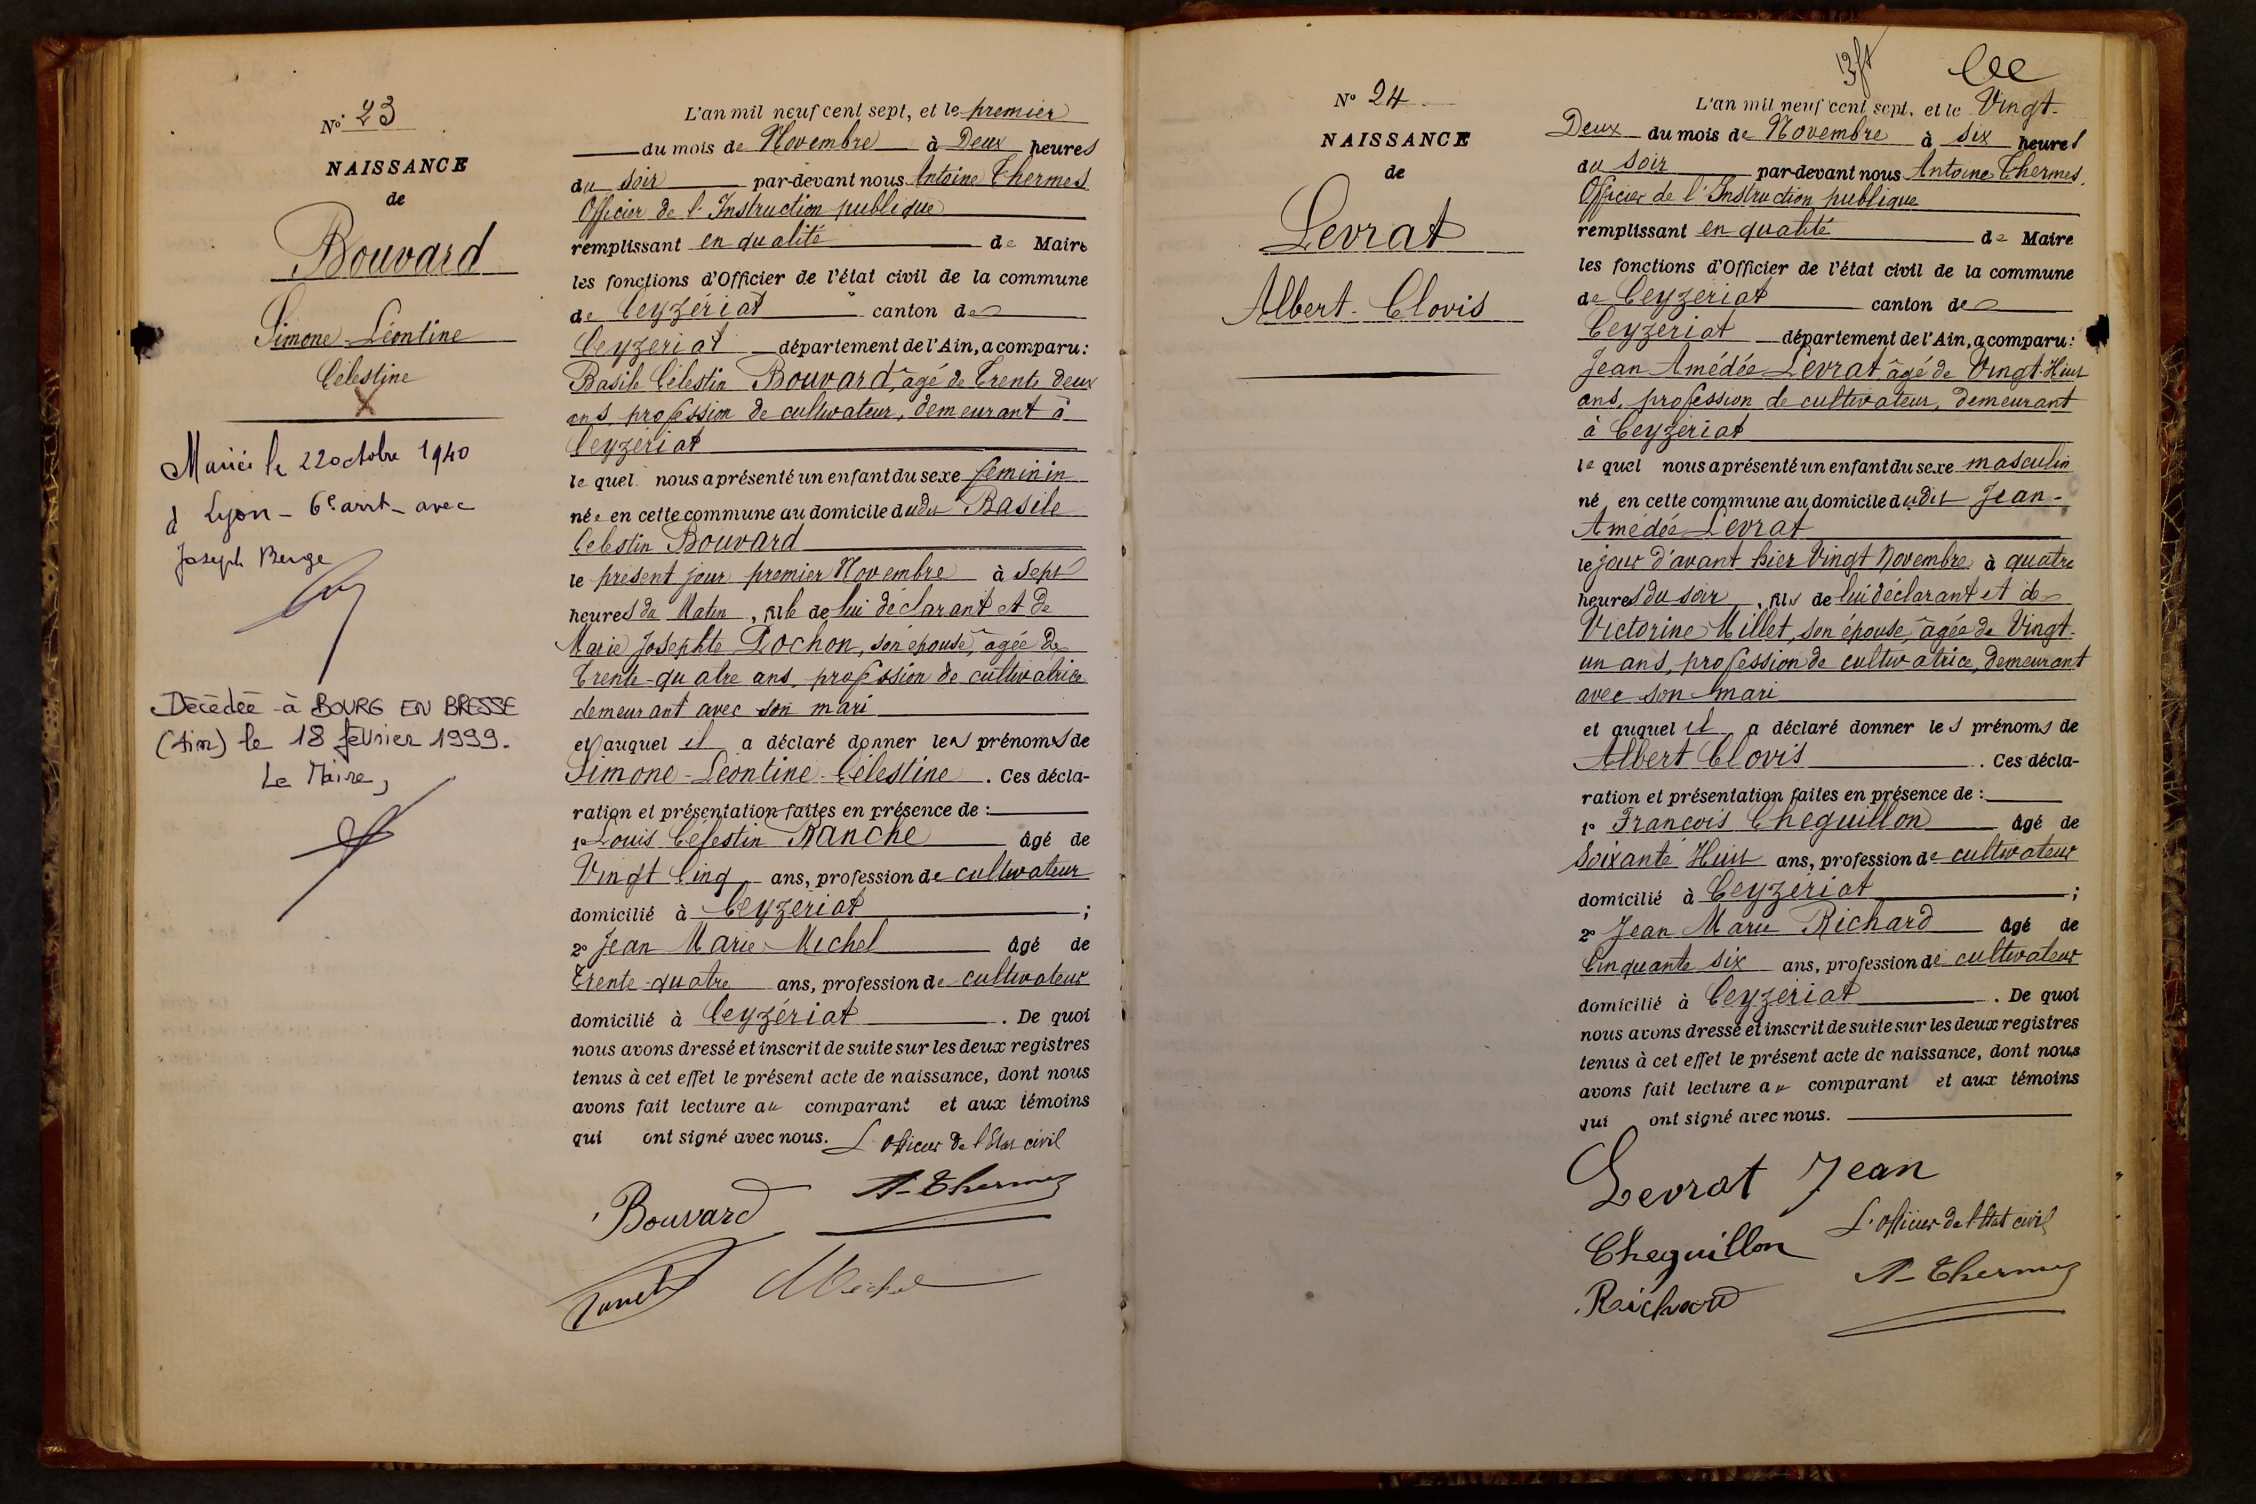 N° 23
NAISSANCE
de
Bouvard
Simone Léontine
Célestine
Mariée le 22 octobre 1940
à Lyon - 6e arrt - avec
Joseph Berge
Décédée à BOURG EN BRESSE
(Ain) le 18 février 1999.
Le Maire,
L'an mil neuf cent sept, et le premier
du mois de Novembre à Deux heures
du soir par-devant nous Antoine Thermes
Officier de l'Instruction publique
remplissant en qualité de Maire
les fonctions d'Officier de l'état civil de la commune
de Ceyzériat canton de
Ceyzeriat département de l'Ain, a comparu :
Basile Célestin Bouvard, âgé de Trente deux
ans, profession de cultivateur, demeurant à
Ceyzériat
le quel nous a présenté un enfant du sexe féminin
née en cette commune au domicile dudit Basile
Célestin Bouvard
le présent jour premier Novembre à Sept
heures du Matin, fille de lui déclarant et de
Marie Josephte Pochon, son épouse, âgée de
Trente-quatre ans, profession de cultivatrice
demeurant avec son mari
et auquel il a déclaré donner les prénoms de
Simone-Léontine-Célestine. Ces décla-
ration et présentation faites en présence de :
1° Louis Célestin Nanche âgé de
Vingt Cinq ans, profession de cultivateur
domicilié à Ceyzériat ;
2° Jean Marie Michel âgé de
Trente-quatre ans, profession de cultivateur
domicilié à Ceyzériat. De quoi
nous avons dressé et inscrit de suite sur les deux registres
tenus à cet effet le présent acte de naissance, dont nous
avons fait lecture au comparant et aux témoins
qui ont signé avec nous. L'officier de l'Etat civil
Bouvard A-Thermes
Michel
N° 24
NAISSANCE
de
Levrat
Albert-Clovis
L'an mil neuf cent sept, et le Vingt-
Deux du mois de Novembre à six heures
du soir par-devant nous Antoine Thermes,
Officier de l'Instruction publique
remplissant en qualité de Maire
les fonctions d'Officier de l'état civil de la commune
de Ceyzériat canton de
Ceyzeriat département de l'Ain, a comparu :
Jean Amédée Levrat âgé de Vingt-Huit
ans, profession de cultivateur, demeurant
à Ceyzeriat
le quel nous a présenté un enfant du sexe masculin
né en cette commune au domicile dudit Jean-
Amédée Levrat
le jour d'avant hier Vingt Novembre à quatre
heures du soir, fils de lui déclarant et de
Victorine Millet, son épouse, âgée de Vingt-
un ans, profession de cultivatrice, demeurant
avec son mari
et auquel il a déclaré donner les prénoms de
Albert Clovis. Ces décla-
ration et présentation faites en présence de :
1° François Cheguillon âgé de
Soixante Huit ans, profession de cultivateur
domicilié à Ceyzériat ;
2° Jean Marie Richard âgé de
Cinquante six ans, profession de cultivateur
domicilié à Ceyzériat. De quoi
nous avons dressé et inscrit de suite sur les deux registres
tenus à cet effet le présent acte de naissance, dont nous
avons fait lecture au comparant et aux témoins
qui ont signé avec nous.
Levrat Jean
L'officier de l'Etat civil
Cheguillon
A-Thermes
Richard